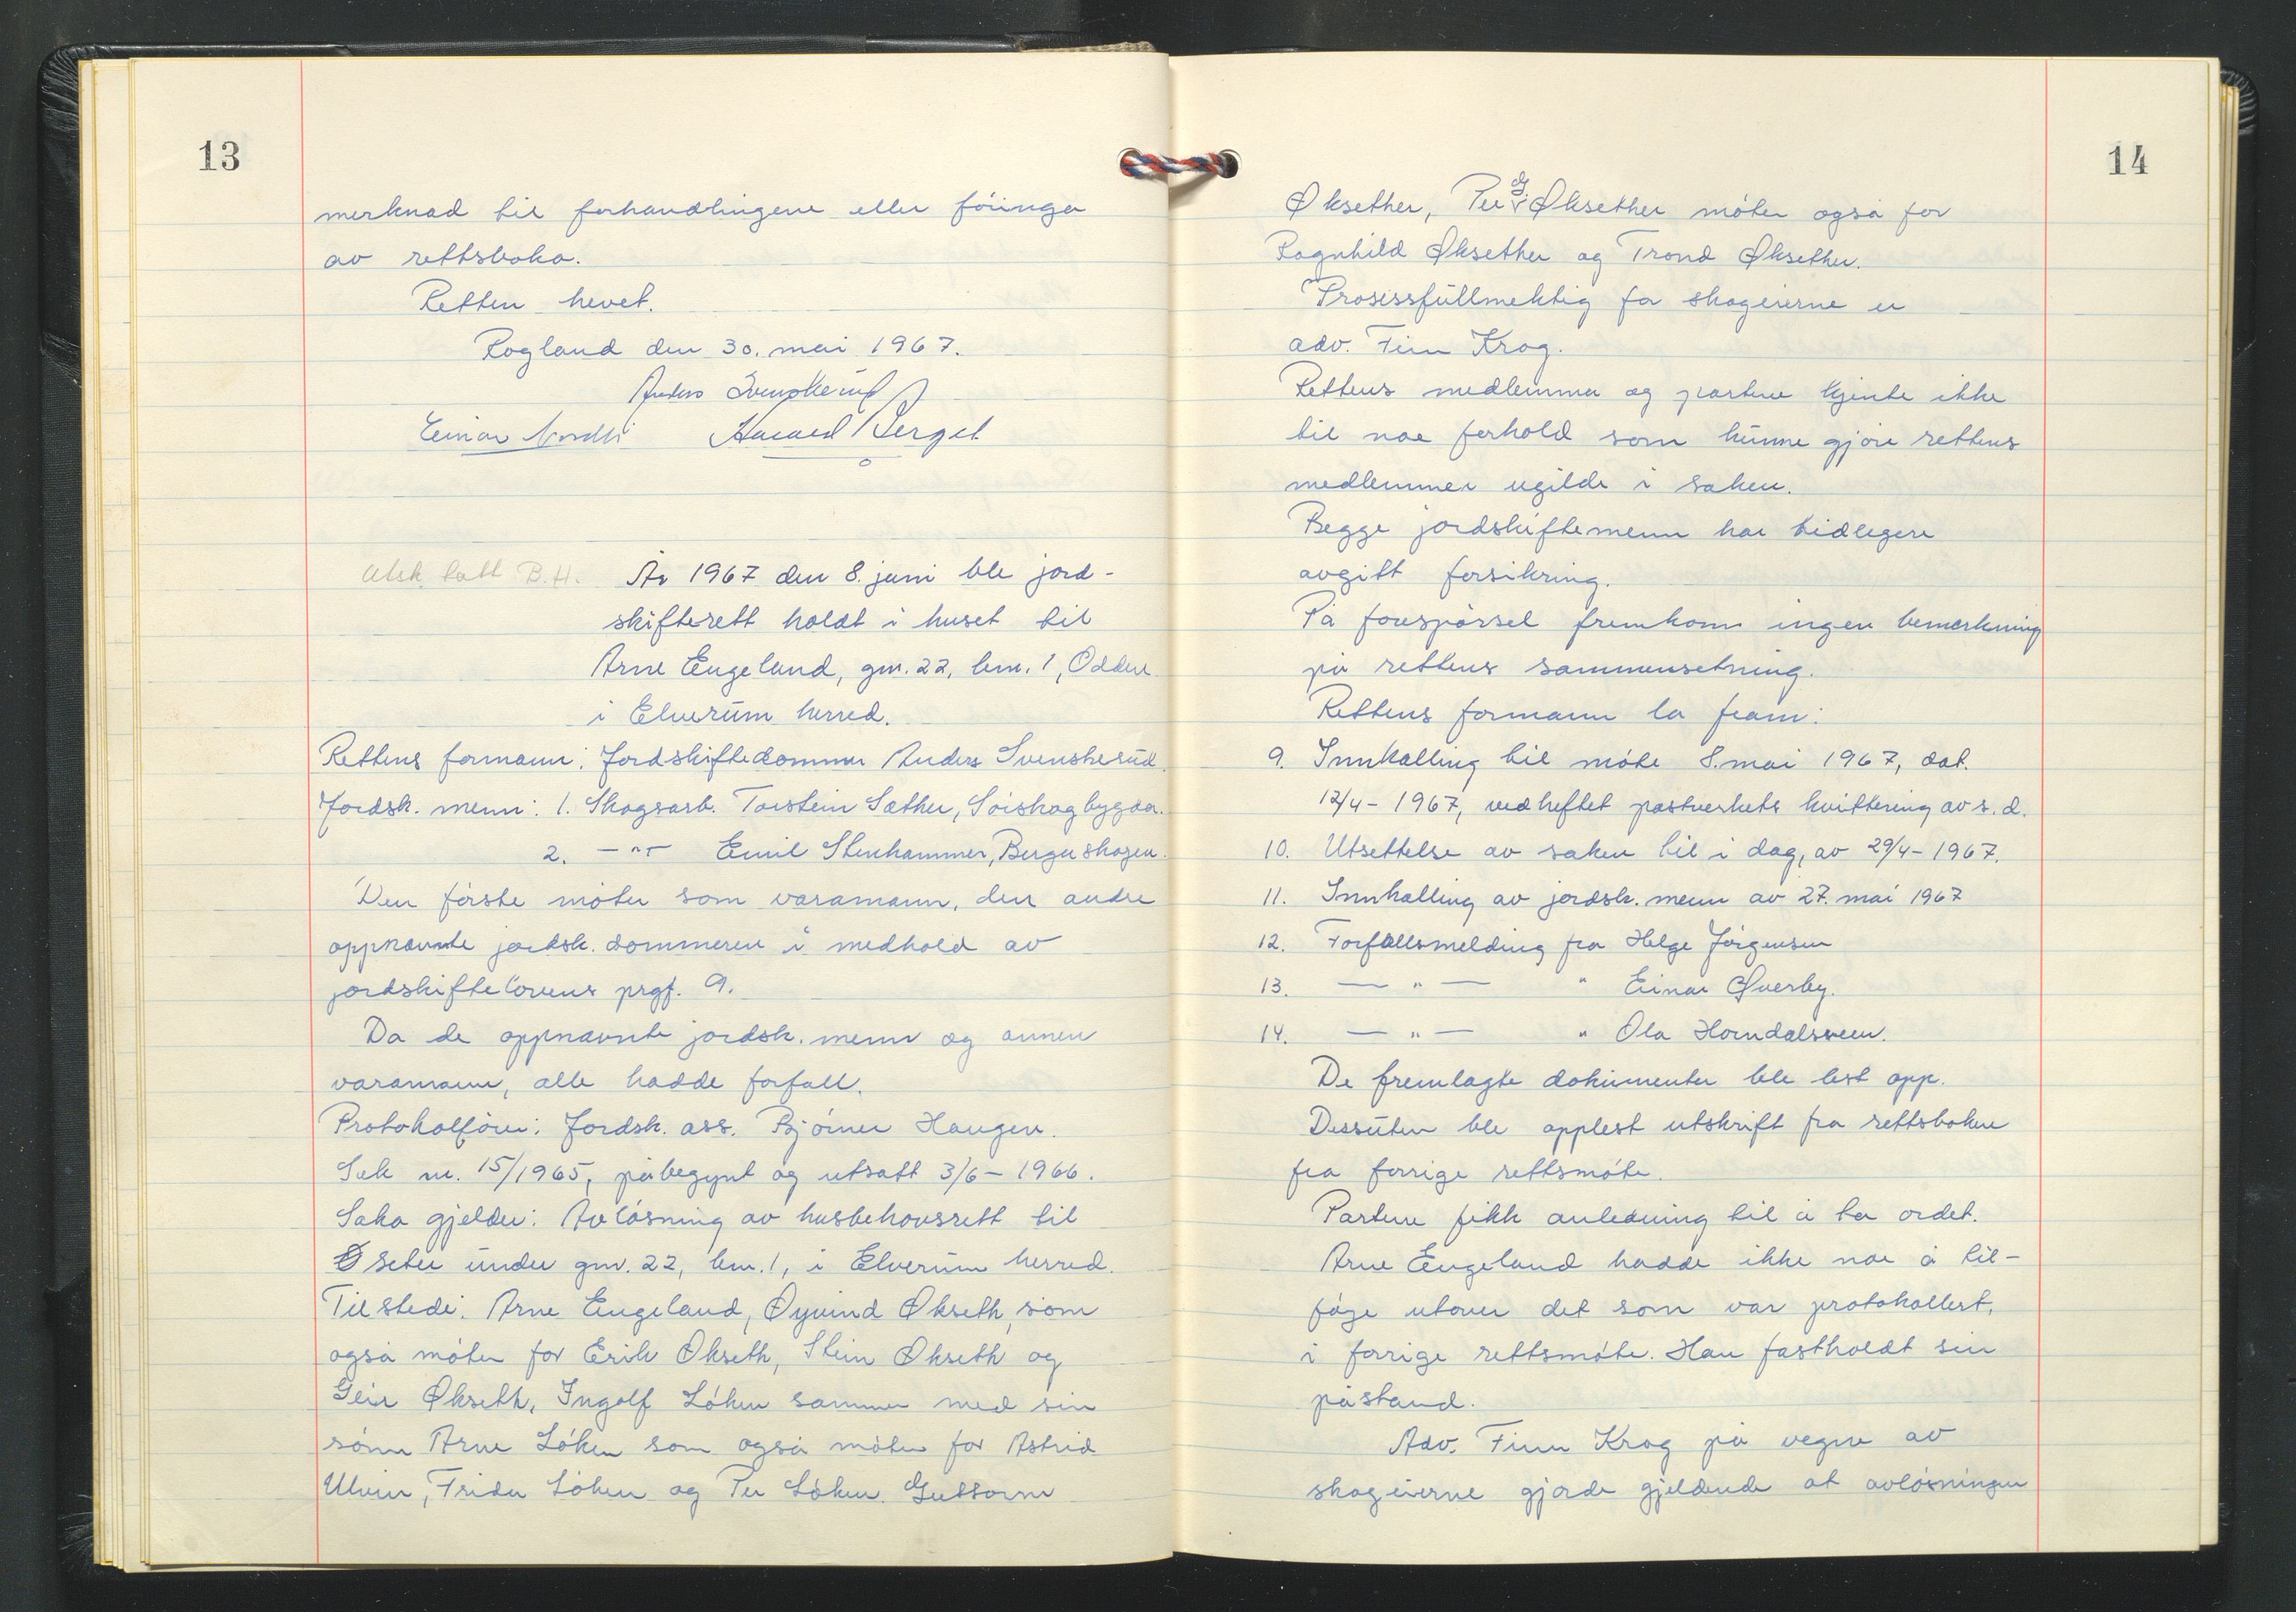 13
merknad til forhandlingene eller föringa
av rettsboka.
Retten hevet.
Rogland den 30. mai 1967.
Anders Svenskerud
Einar Nordli Haavard Berget
Utsk. tatt B.H. År 1967 den 8. juni ble jord-
skifterett holdt i huset til
Arne Engeland, gnr. 22, bnr. 1, Odden
i Elverum herred.
Rettens formann: Jordskiftedommer Anders Svenskerud.
Jordsk. menn: 1. Skogsarb. Torstein Sæther, Sörskogbygda.
2. — " — Emil Stenhammer, Bergerskogen.
Den förste möter som varamann, den andre
oppnævnte jordsk. dommeren i medhold av
jordskiftelovens prgf. 9.
Da de oppnævnte jordsk. menn og annen
varamann, alle hadde forfall.
Protokollförer: Jordsk. ass. Björner Haugen.
Sak nr. 15/1965, påbegynt og utsatt 3/6 - 1966.
Saka gjelder: Avlösning av husbehovsrett til
Øseter under gnr. 22, bnr. 1, i Elverum herred.
Tilstede: Arne Engeland, Øyvind Økseth, som
også möter for Erik Økseth, Stein Økseth og
Geir Økseth, Ingolf Löken sammen med sin
sönn Arne Löken som også möter for Astrid
Ulvin, Fridu Löken og Per Löken. Guttorm
14
Øksether, Per G. Øksether möter også for
Ragnhild Øksether og Trond Øksether.
Prosessfullmektig for skogeierne er
adv. Finn Krog.
Rettens medlemmer og partene kjente ikke
til noe forhold som kunne gjöre rettens
medlemmer ugilde i saken.
Begge jordskiftemenn har tidligere
avgitt forsikring.
På forespörsel fremkom ingen bemerkning
på rettens sammensetning.
Rettens formann la fram:
9. Innkalling til möte 8. mai 1967, dat.
12/4 - 1967, vedheftet postverkets kvittering av s. d.
10. Utsettelse av saken til i dag, av 29/4 - 1967.
11. Innkalling av jordsk. menn av 27. mai 1967
12. Forfallsmelding fra Helge Jörgensen
13. — " — " Einar Øverby.
14. — " — " Ola Horndalsveen.
De fremlagte dokumenter ble lest opp.
Dessuten ble opplest utskrift fra rettsboken
fra forrige rettsmöte.
Partene fikk anledning til å ta ordet.
Arne Engeland hadde ikke noe å til-
föge utover det som var protokollert,
i forrige rettsmöte. Han fastholdt sin
påstand.
Adv. Finn Krog på vegne av
skogeierne gjorde gjeldende at avlösningen